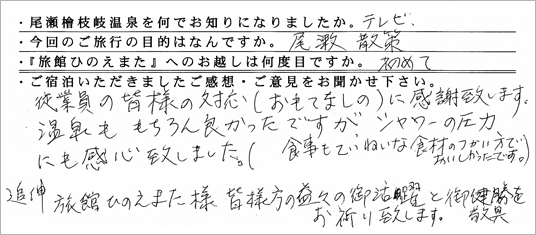 ・尾瀬檜枝岐温泉を何でお知りになりましたか。テレビ.
・今回のご旅行の目的はなんですか。尾瀬 散策
・『旅館ひのえまた』へのお越しは何度目ですか。初めて
・ご宿泊いただきましたご感想・ご意見をお聞かせ下さい。
従業員の皆様の対応(おもてなしの)に感謝致します。
温泉も もちろん良かったですが シャワーの圧力
にも感心致しました。(食事もていねいな食材のつかい方で
おいしかったです。)
追伸 旅館ひのえまた様 皆様方の益々の御活躍と御健勝を
お祈り致します。 敬具